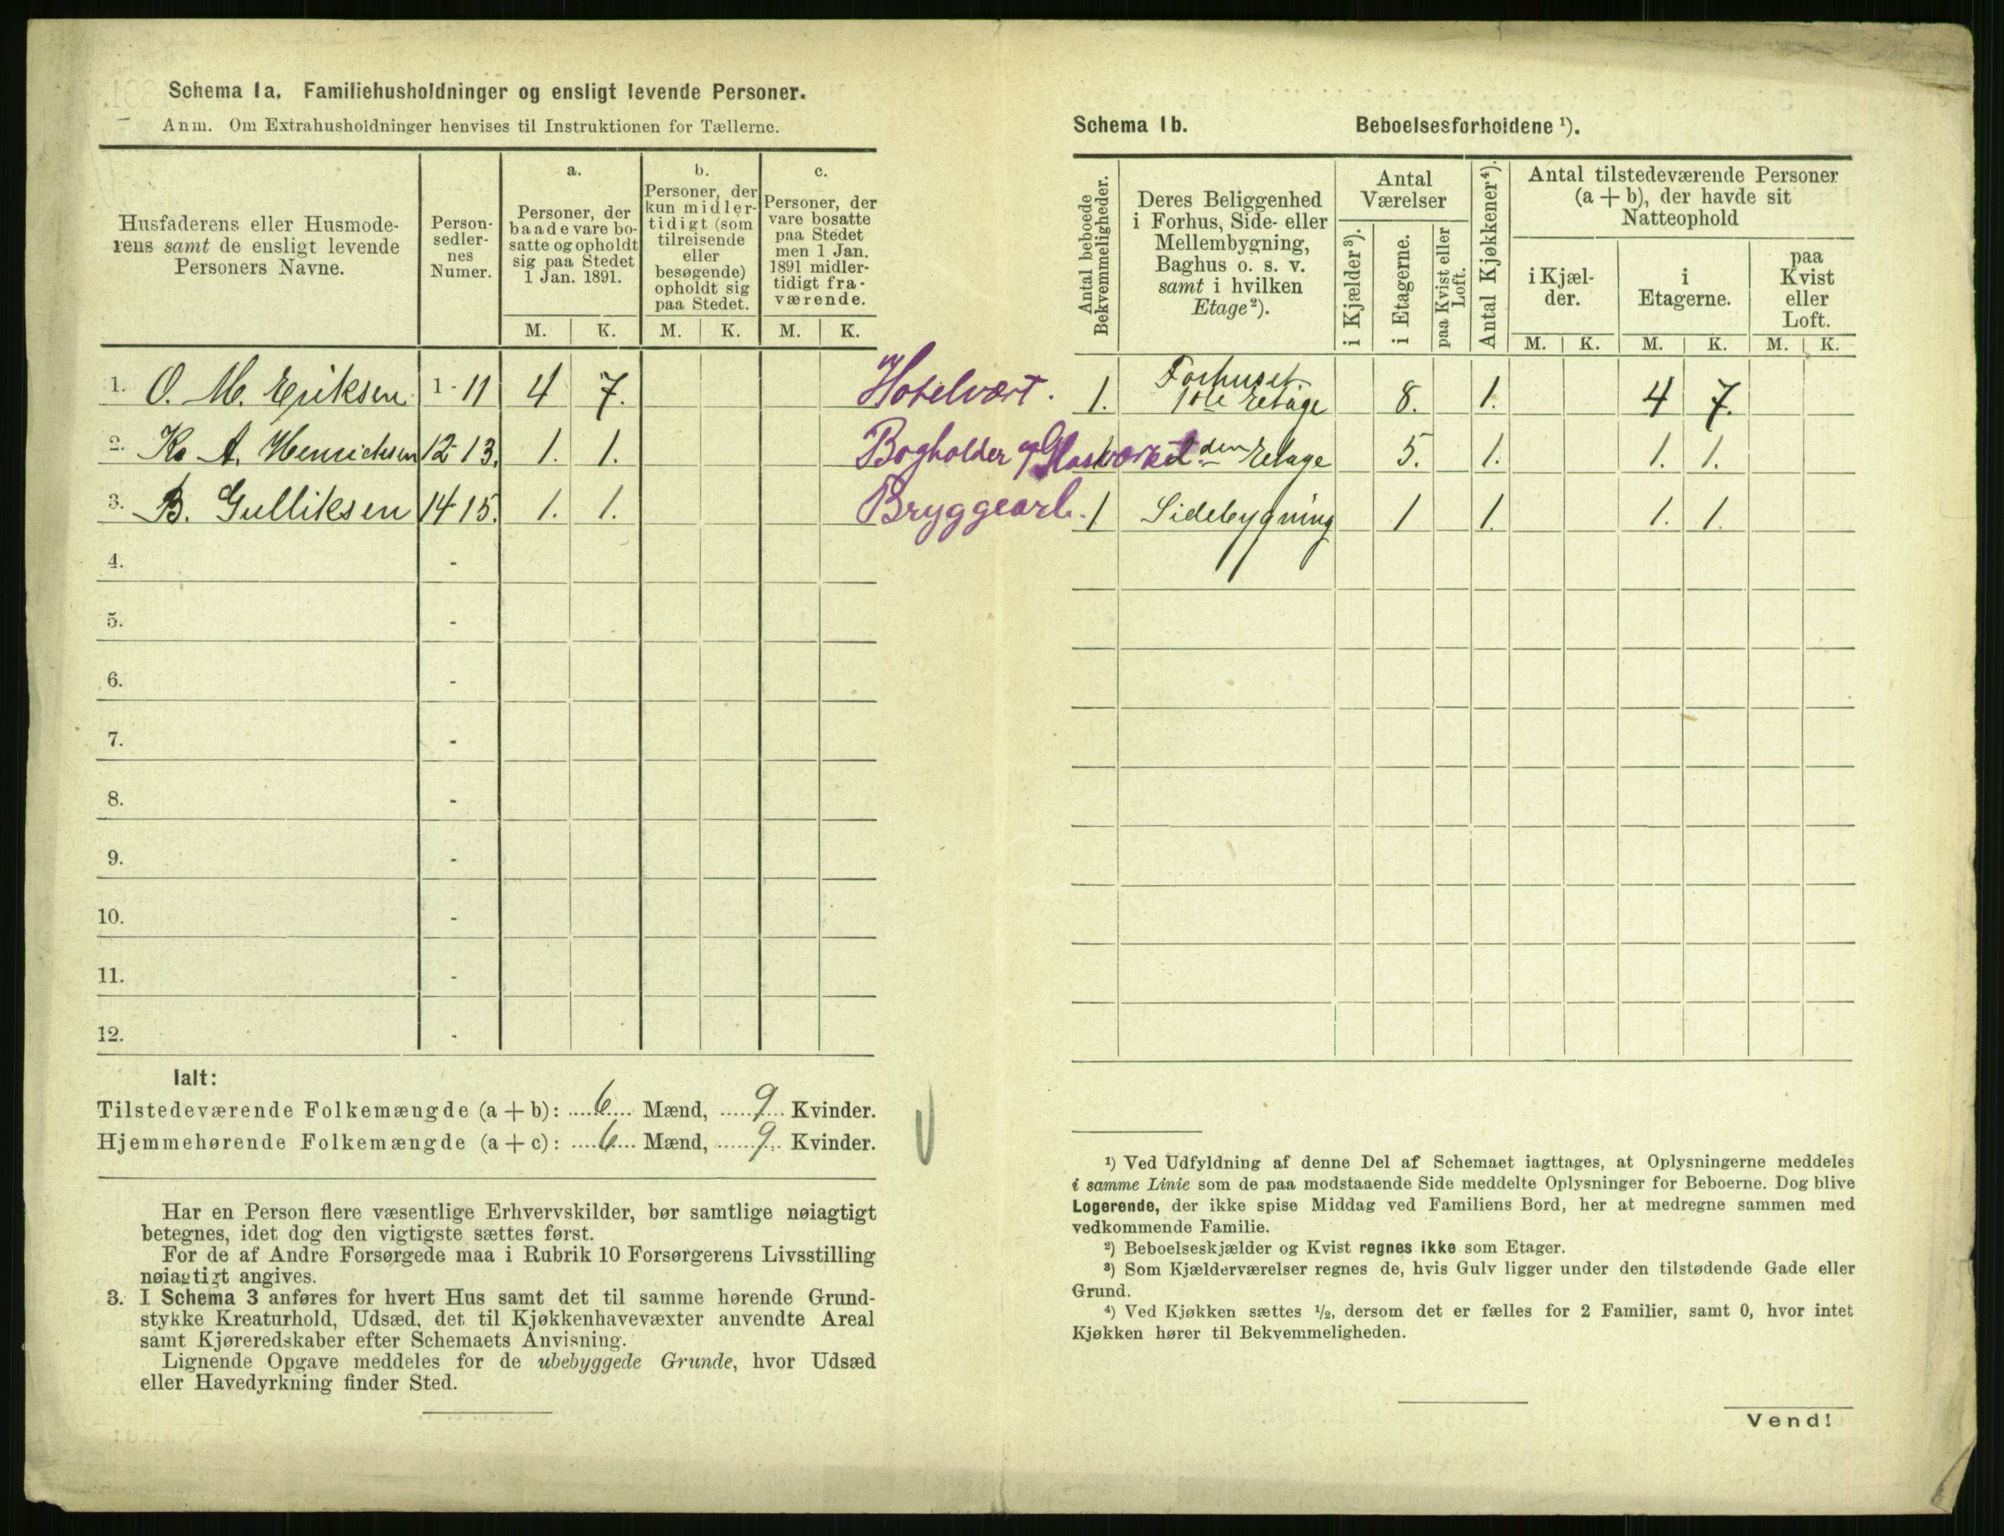 Schema 1a. Familiehusholdninger og ensligt levende Personer.
Anm. Om Extrahusholdninger henvises til Instruktionen for Tællerne.
Husfaderens eller Husmode-
rens samt de ensligt levende
Personers Navne.
Person-
sedler-
nes
Numer.
a.
Personer, der
baade vare bo-
satte og opholdt
sig paa Stedet
1 Jan. 1891.
b.
Personer, der
kun midler-
tidigt (som
tilreisende
eller
besøgende)
opholdt sig
paa Stedet.
c.
Personer, der
vare bosatte
paa Stedet
men 1 Jan.
1891 midler-
tidigt fra-
værende.
M. K. M. K. M. K.
1. O. M. Eriksen 1-11 4 7. Hotelvært.
2. K. A. Henrichsen 12-13. 1. 1. Bogholder
3. B. Gulliksen 14-15. 1. 1. Bryggearb.
4. -
5. -
6. -
7. -
8. -
9. -
10. -
11. -
12. -
Ialt:
Tilstedeværende Folkemængde (a + b): 6 Mænd, 9 Kvinder.
Hjemmehørende Folkemængde (a + c): 6 Mænd, 9 Kvinder.
Har en Person flere væsentlige Erhvervskilder, bør samtlige nøiagtigt
betegnes, idet dog den vigtigste sættes først.
For de af Andre Forsørgede maa i Rubrik 10 Forsørgerens Livsstilling
nøiagtigt angives.
3. I Schema 3 anføres for hvert Hus samt det til samme hørende Grund-
stykke Kreaturhold, Udsæd, det til Kjøkkenhavevæxter anvendte Areal
samt Kjøreredskaber efter Schemaets Anvisning.
Lignende Opgave meddeles for de ubebyggede Grunde, hvor Udsæd
eller Havedyrkning finder Sted.
Schema 1b. Beboelsesforholdene ¹).
Antal beboede
Bekvemmeligheder.
Deres Beliggenhed
i Forhus, Side- eller
Mellembygning,
Baghus o. s. v.
samt i hvilken
Etage²).
Antal
Værelser
i Kjælder³).
i Etagerne.
paa Kvist eller
Loft.
Antal Kjøkkener⁴).
Antal tilstedeværende Personer
(a + b), der havde sit
Natteophold
i Kjæl-
der.
i
Etagerne.
paa
Kvist
eller
Loft.
M. K. M. K. M. K.
1. Forhuset
1ste Etage 8. 1. 4 7.
1 2den Etage 5. 1. 1. 1.
1 Sidebygning 1 1. 1. 1.
¹) Ved Udfyldning af denne Del af Schemaet iagttages, at Oplysningerne meddeles
i samme Linie som de paa modstaaende Side meddelte Oplysninger for Beboerne. Dog blive
Logerende, der ikke spise Middag ved Familiens Bord, her at medregne sammen med
vedkommende Familie.
²) Beboelseskjælder og Kvist regnes ikke som Etager.
³) Som Kjælderværelser regnes de, hvis Gulv ligger under den tilstødende Gade eller
Grund.
⁴) Ved Kjøkken sættes ½, dersom det er fælles for 2 Familier, samt 0, hvor intet
Kjøkken hører til Bekvemmeligheden.
Vend!